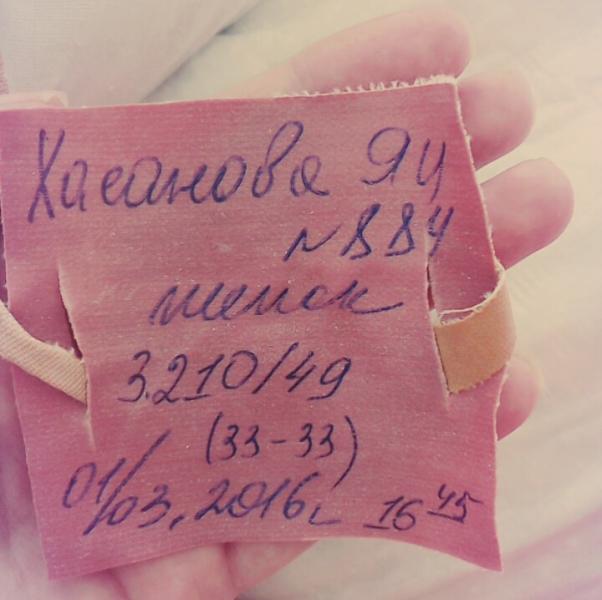 Хасанова ЯЧ
№884
женск
3.210/49
(33-33)
01/03.2016г 16 45